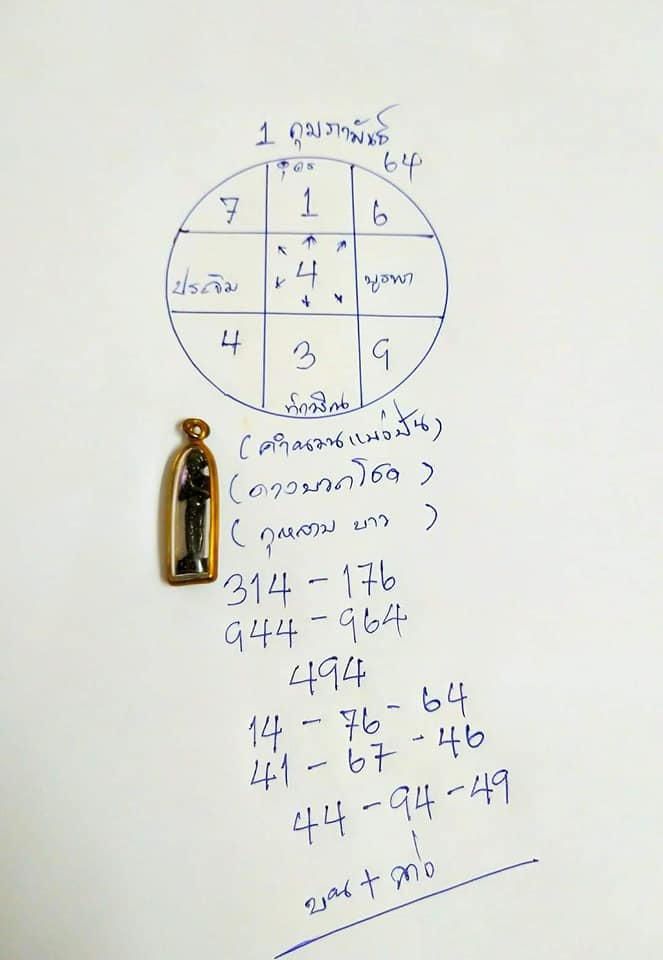 1 กุมภาพันธ์
64
อุดร
7 1 6
ประจิม 4 บูรพา
4 3 9
ทักษิณ
(คำนวนแม่งปั่น)
(ดาวบวกโชค)
(กุหลาบ ขาว)
314 - 176
944 - 964
494
14 - 76 - 64
41 - 67 - 46
44 - 94 - 49
บน + ล่าง